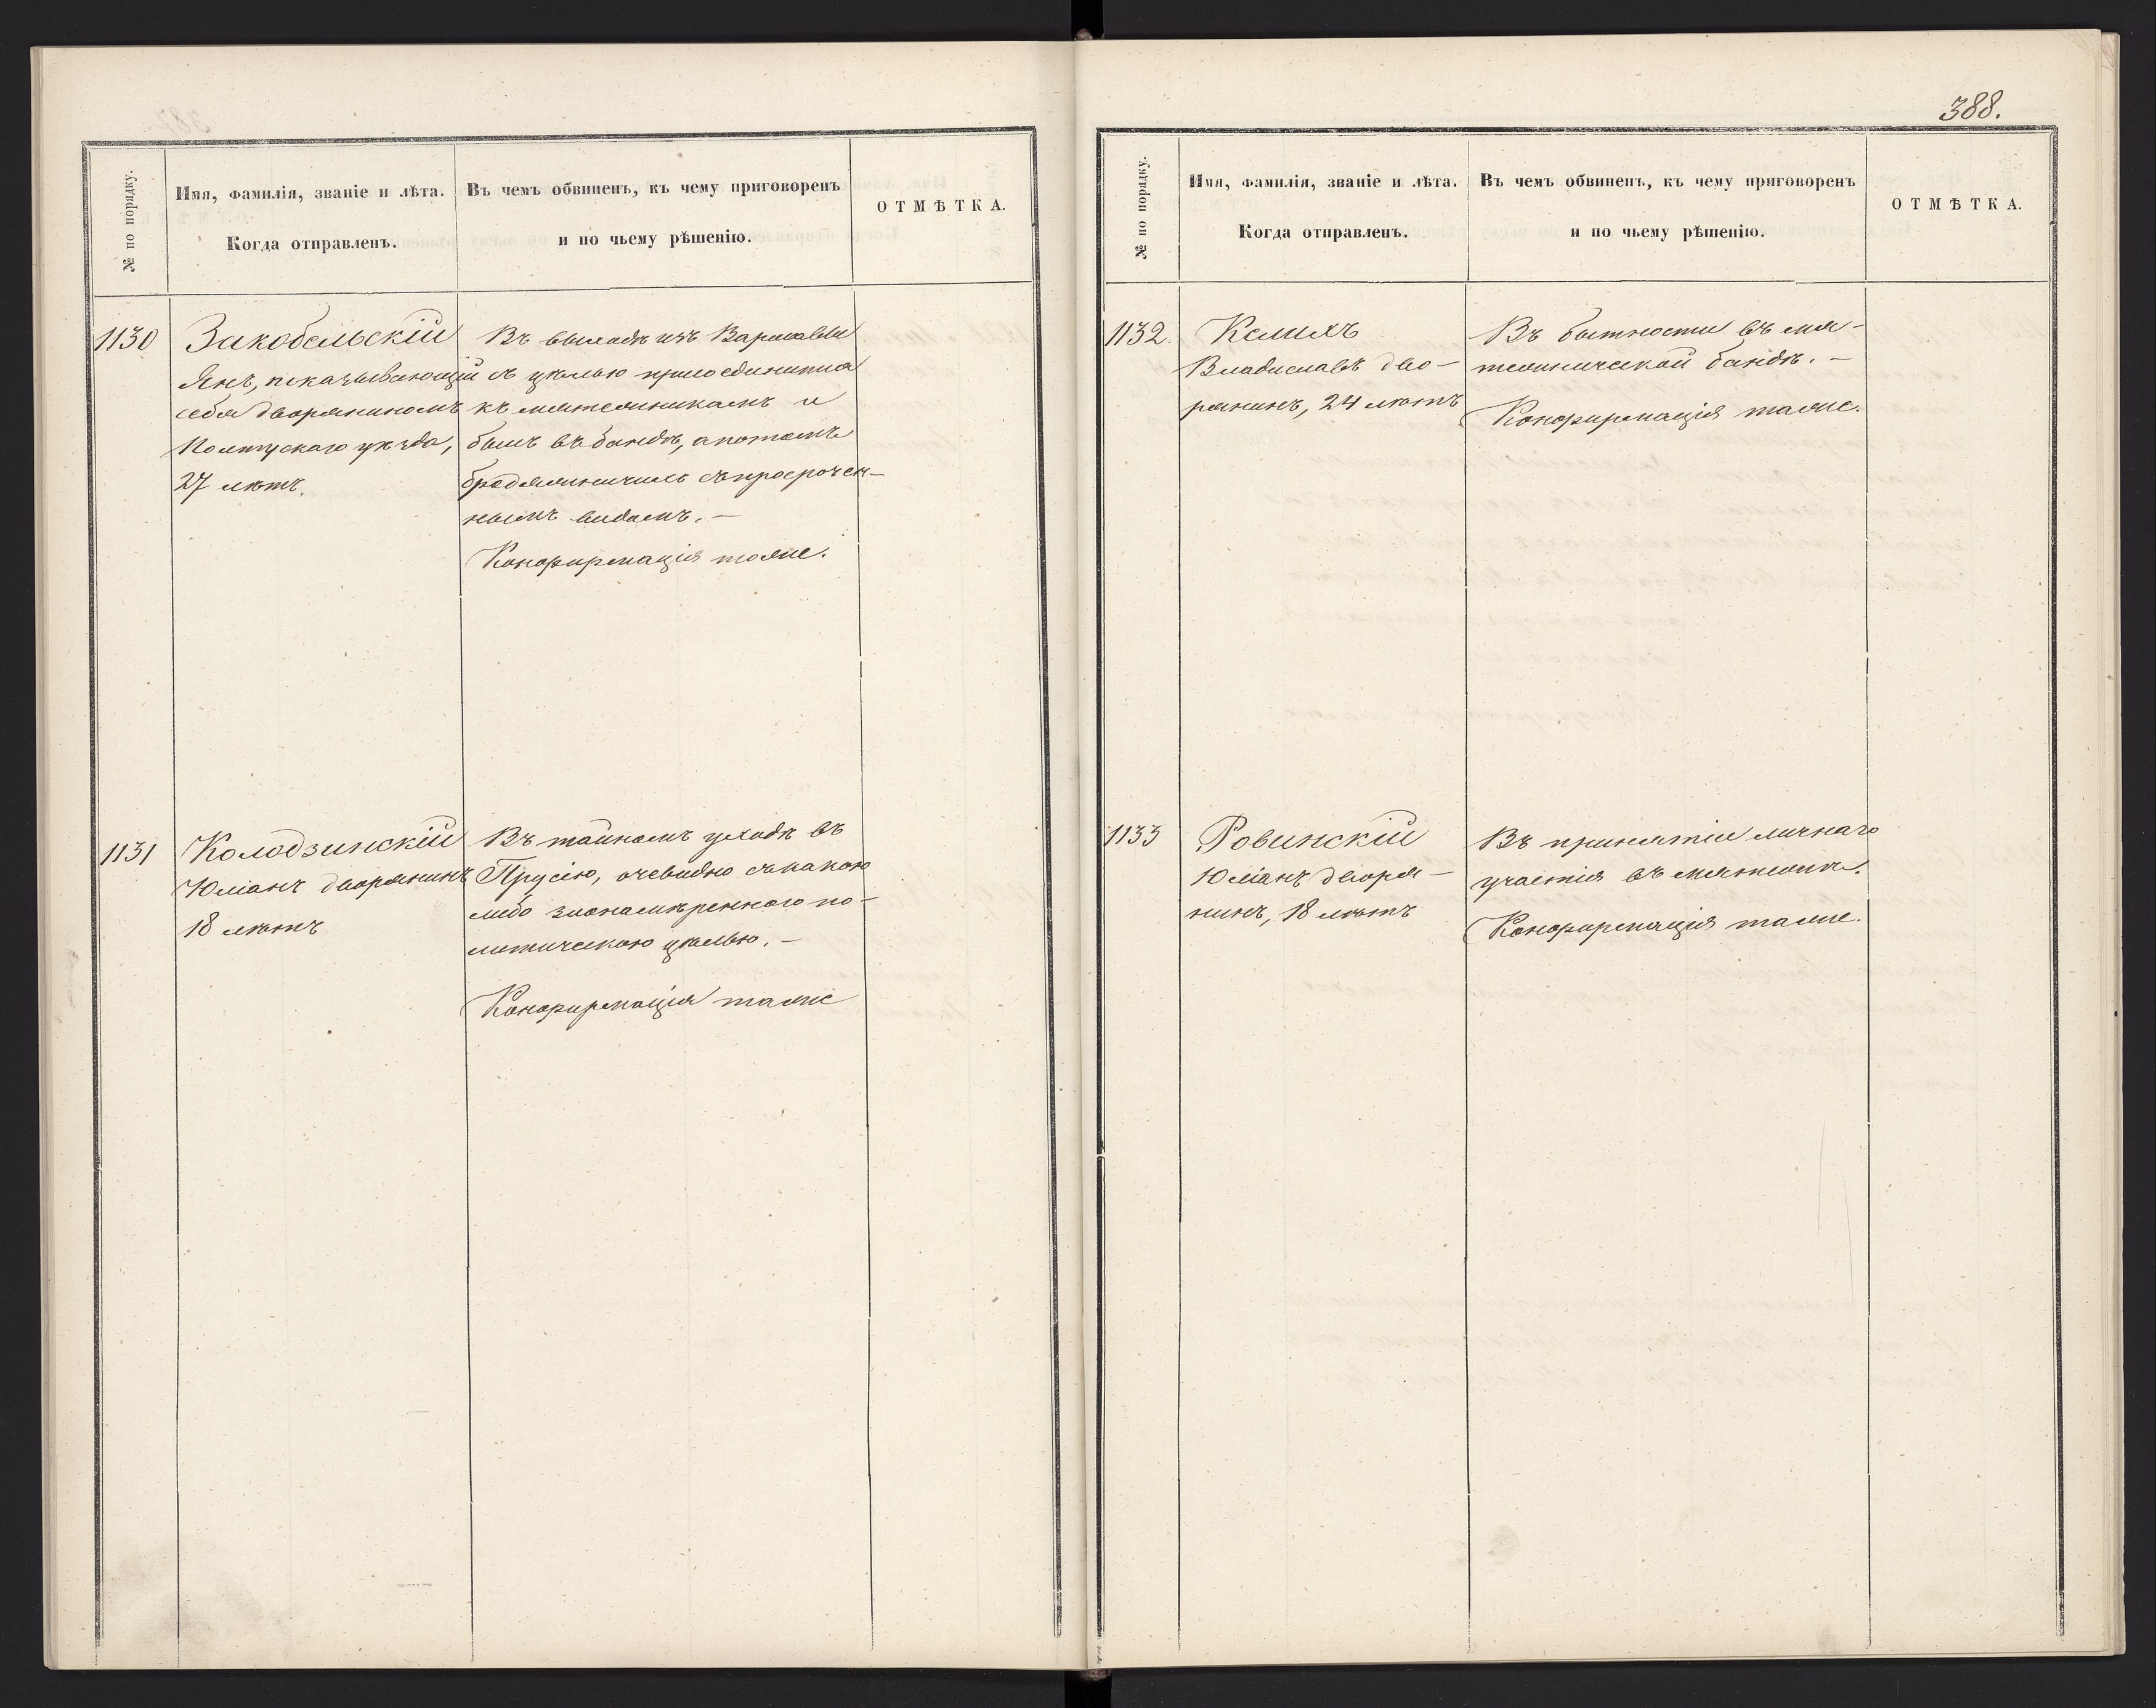 № по порядку.
Имя, фамилія, званіе и лѣта.
Когда отправленъ.
Въ чемъ обвиненъ, къ чему приговоренъ
и по чьему рѣшенію.
ОТМѢТКА.
1130
Закобельскій
Янъ, показывающій
себя дворяниномъ
Полтускаго уѣзда,
27 лѣтъ.
Въ выходѣ изъ Варшавы
съ цѣлью присоединится
къ мятежникамъ и
былъ въ бандѣ, а потомъ
бродяжничилъ съ просрочен-
нымъ видомъ. —
Конфирмація таже.
1131
Колодзинскій
Юліанъ дворянинъ
18 лѣтъ
Въ тайномъ уходѣ въ
Прусію, очевидно съ какою
либо злонамѣренною по-
литическою цѣлью. —
Конфирмація таже
388.
№ по порядку.
Имя, фамилія, званіе и лѣта.
Когда отправленъ.
Въ чемъ обвиненъ, къ чему приговоренъ
и по чьему рѣшенію.
ОТМѢТКА.
1132.
Келихъ
Владиславъ дво-
рянинъ, 24 лѣтъ
Въ бытности въ мя-
тежнической бандѣ. —
Конфирмація таже.
1133
Ровинскій
Юліанъ дворя-
нинъ, 18 лѣтъ
Въ принятіи личнаго
участія въ мятежѣ.
Конфирмація таже.